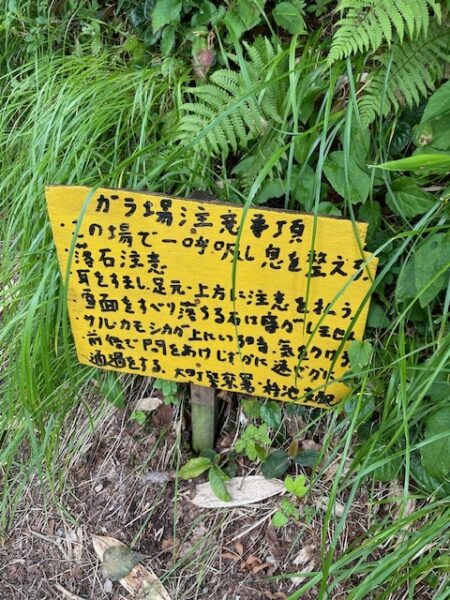 ガラ場注意事項
の場で一呼吸し息を整える
落石注意
耳をすまし、足元・上方に注意をはらう
雪面をすべり落ちる石は音がし
サル、カモシカが上にいる時、気をつける
前後で間をあけしずかに速でかに
通過をする。大町警察署・栂池